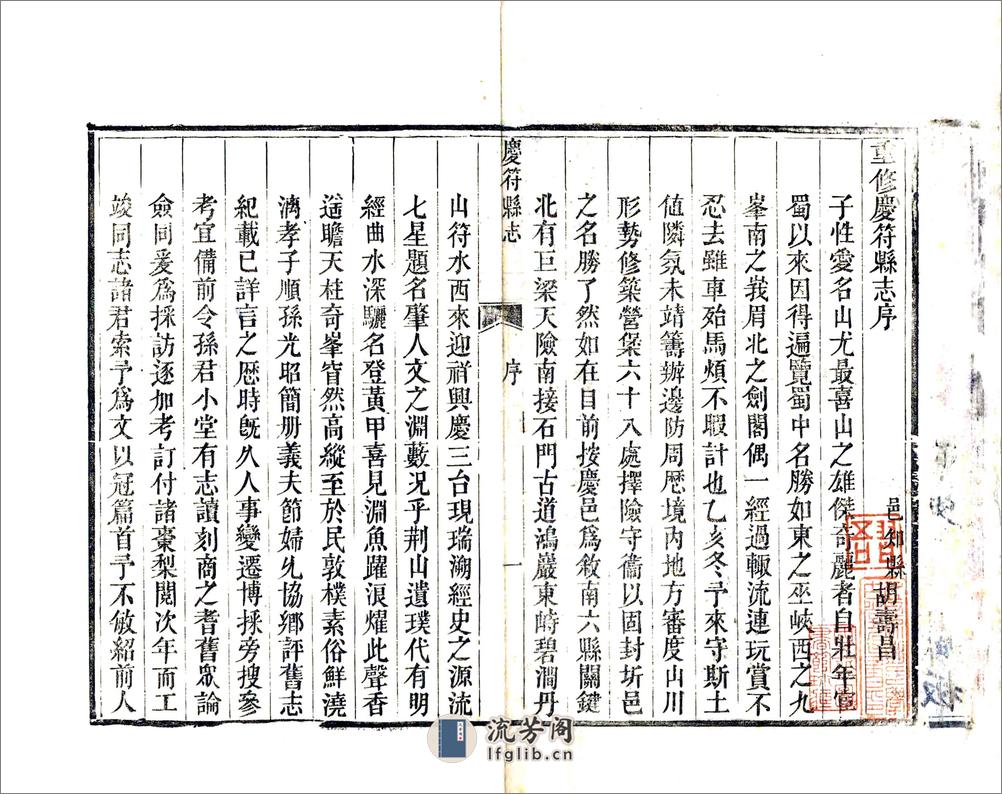 重修慶符縣志序
邑知縣胡壽昌
予性愛名山尤最喜山之雄傑奇麗者自壯年宦
蜀以來因得遍覽蜀中名勝如東之巫峽西之九
峯南之峩眉北之劍閣偶一經過輒流連玩賞不
忍去雖車殆馬煩不暇計也乙亥冬予來守斯土
值隣氛未靖籌辦邊防周歷境內地方審度山川
形勢修築營柴六十八處擇險守衞以固封圻邑
之名勝了然如在目前按慶邑爲敘南六縣關鍵
北有巨梁天險南接石門古道鴻巖東峙碧澗丹
慶符縣志
序
一
山符水西來迎祥興慶三台現瑞溯經史之源流
七星題名肇人文之淵藪况乎荆山遺璞代有明
經曲水深驪名登黃甲喜見淵魚躍浪燿此聲香
遥瞻天柱奇峯窅然高縱至於民敦樸素俗鮮澆
漓孝子順孫光昭簡册義夫節婦允協鄉評舊志
紀載已詳言之歴時旣久人事變遷博採旁搜參
考宜備前令孫君小堂有志讀刻商之耆舊衆論
僉同爰爲採訪逐加考訂付諸棗梨閱次年而工
竣同志諸君索予爲文以冠篇首予不敏紹前人
流芳阁
lfglib.cn